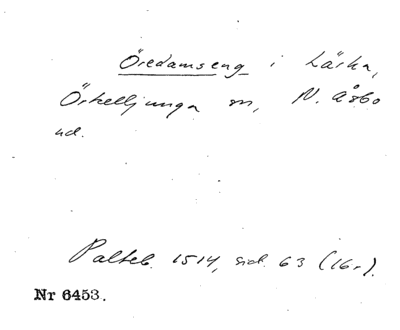 Öredamseng i Lärka,
Örkelljunga sn, N. Åsbo
hd.
Palteb. 1514, sid. 63 (16r).
Nr 6453.